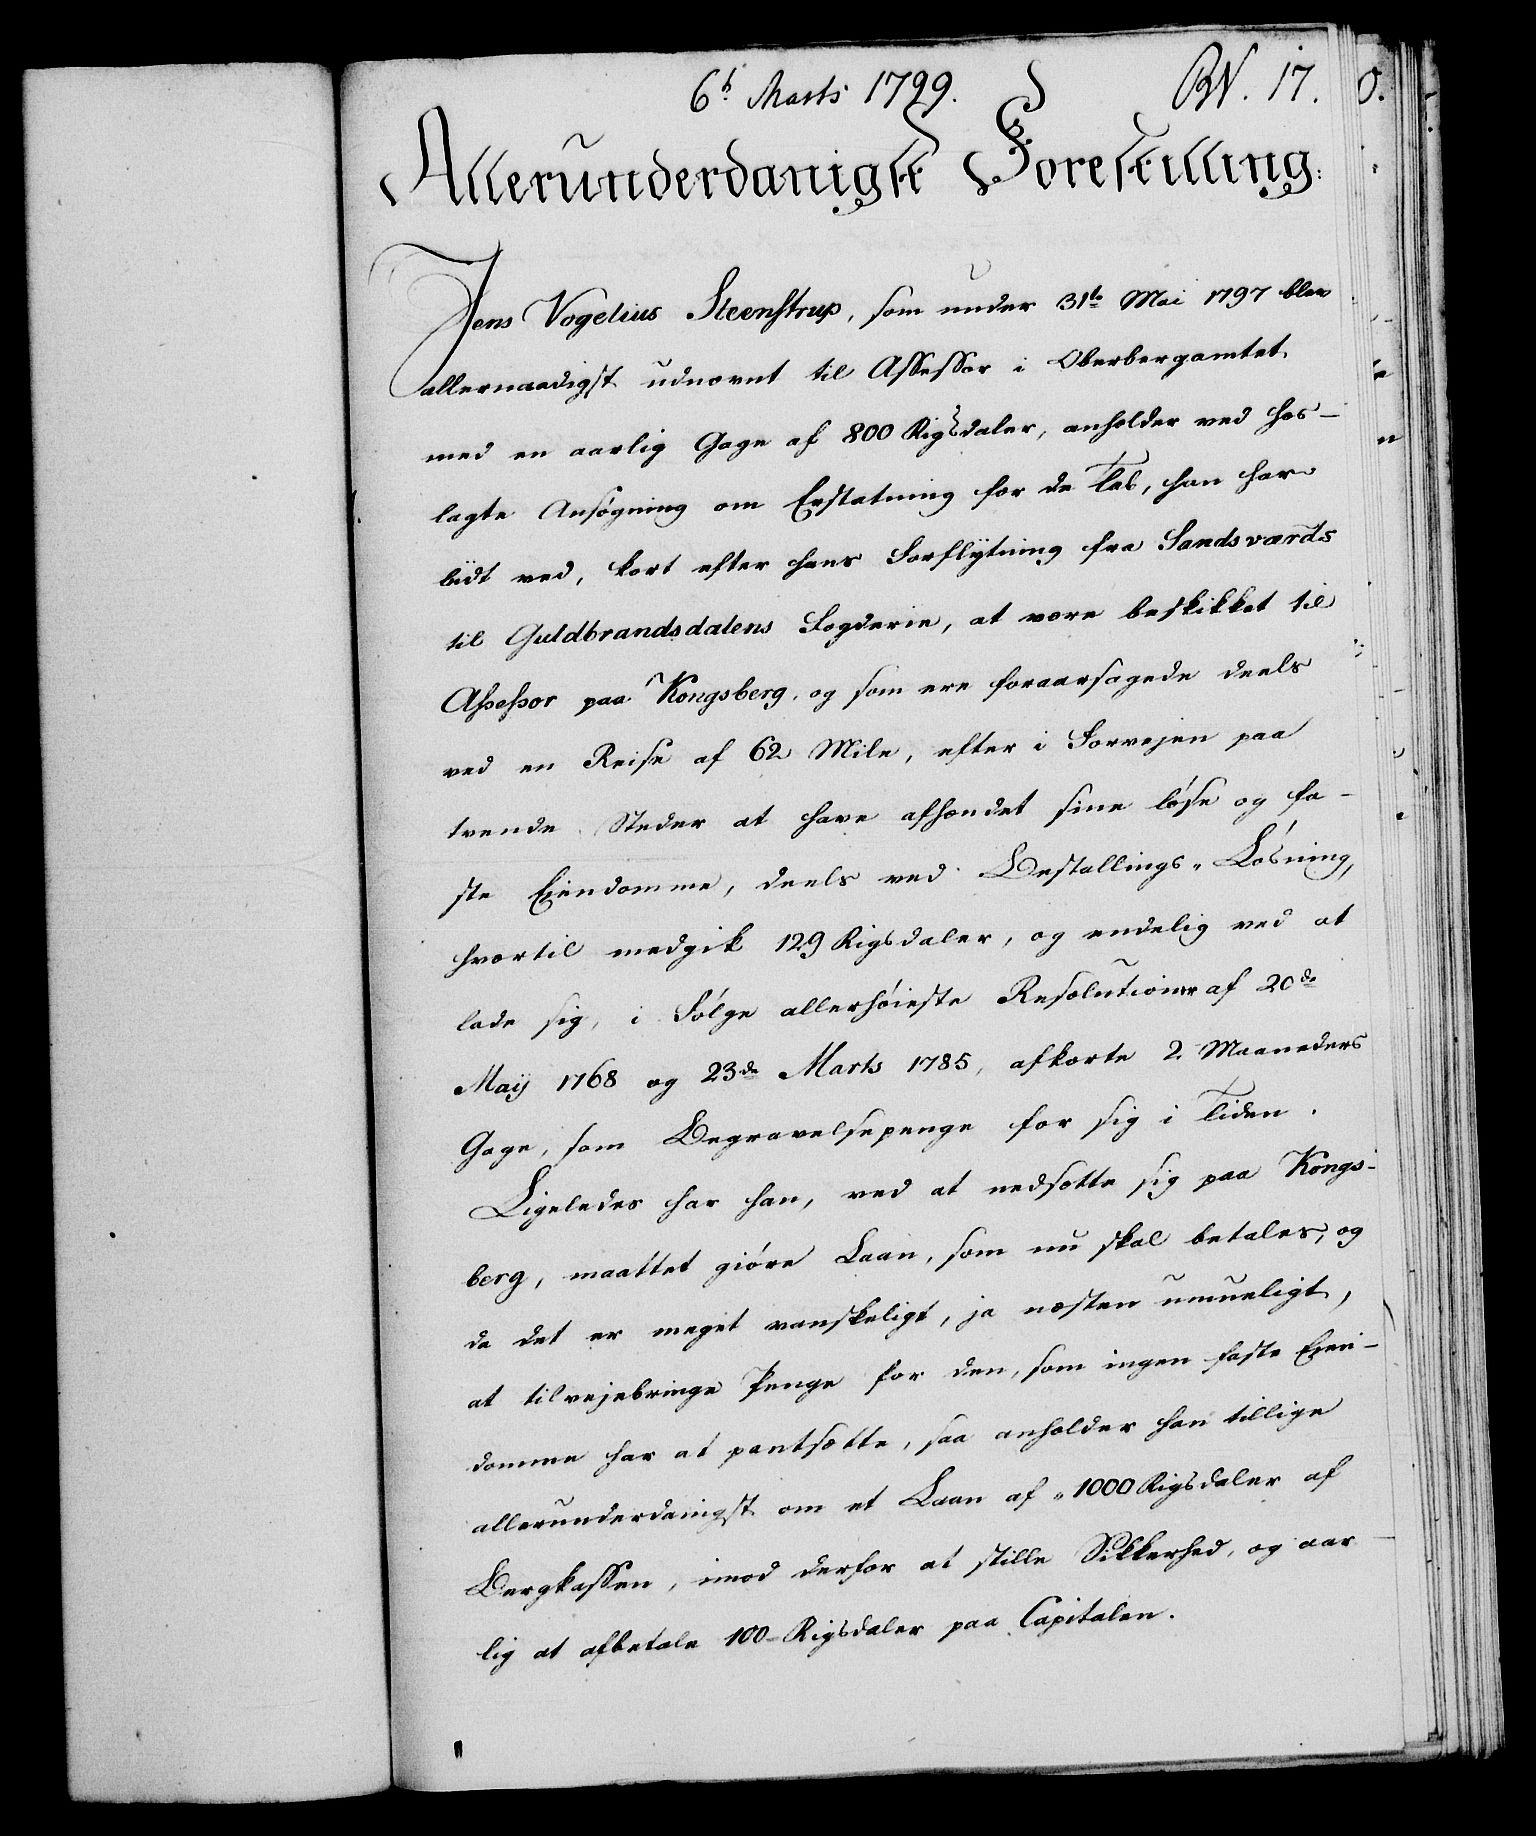 6t Marts 1799. RN. 17.
Allerunderdanigst Forestilling:
Jens Vogelius Steenstrup, som under 31te Mai 1797 blev
allernaadigst udnævnt til Assessor i Oberbergamtet
med en aarlig Gage af 800 Rigsdaler, anholder ved hos-
lagte Ansøgning om Erstatning for de Tab, han har
lidt ved, kort efter hans Forflytning fra Sandsværds
til Guldbrandsdalens Fogderie, at være beskikket til
Assessor paa Kongsberg, og som ere foraarsagede deels
ved en Reise af 62 Mile, efter i Forvejen paa
tvende Steder at have afhændet sine løse og fa-
ste Eiendomme, deels ved Bestallings-Løsning,
hvortil medgik 129 Rigsdaler, og endelig ved at
lade sig, i Følge allerhøieste Resolutioner af 20de
Maij 1768 og 23de Marts 1785, afkorte 2 Maaneders
Gage, som Begravelsepenge for sig i Tiden.
Ligeledes har han, ved at nedsætte sig paa Kongs-
berg, maattet giøre Laan, som nu skal betales, og
da det er meget vanskeligt, ja næsten umueligt,
at tilvejebringe Penge for den, som ingen faste Eien-
domme har at pantsætte, saa anholder han tillige
allerunderdanigst om et Laan af 1000 Rigsdaler af
Bergkassen, imod derfor at stille Sikkerhed, og aar
lig at afbetale 100 Rigsdaler paa Capitalen.